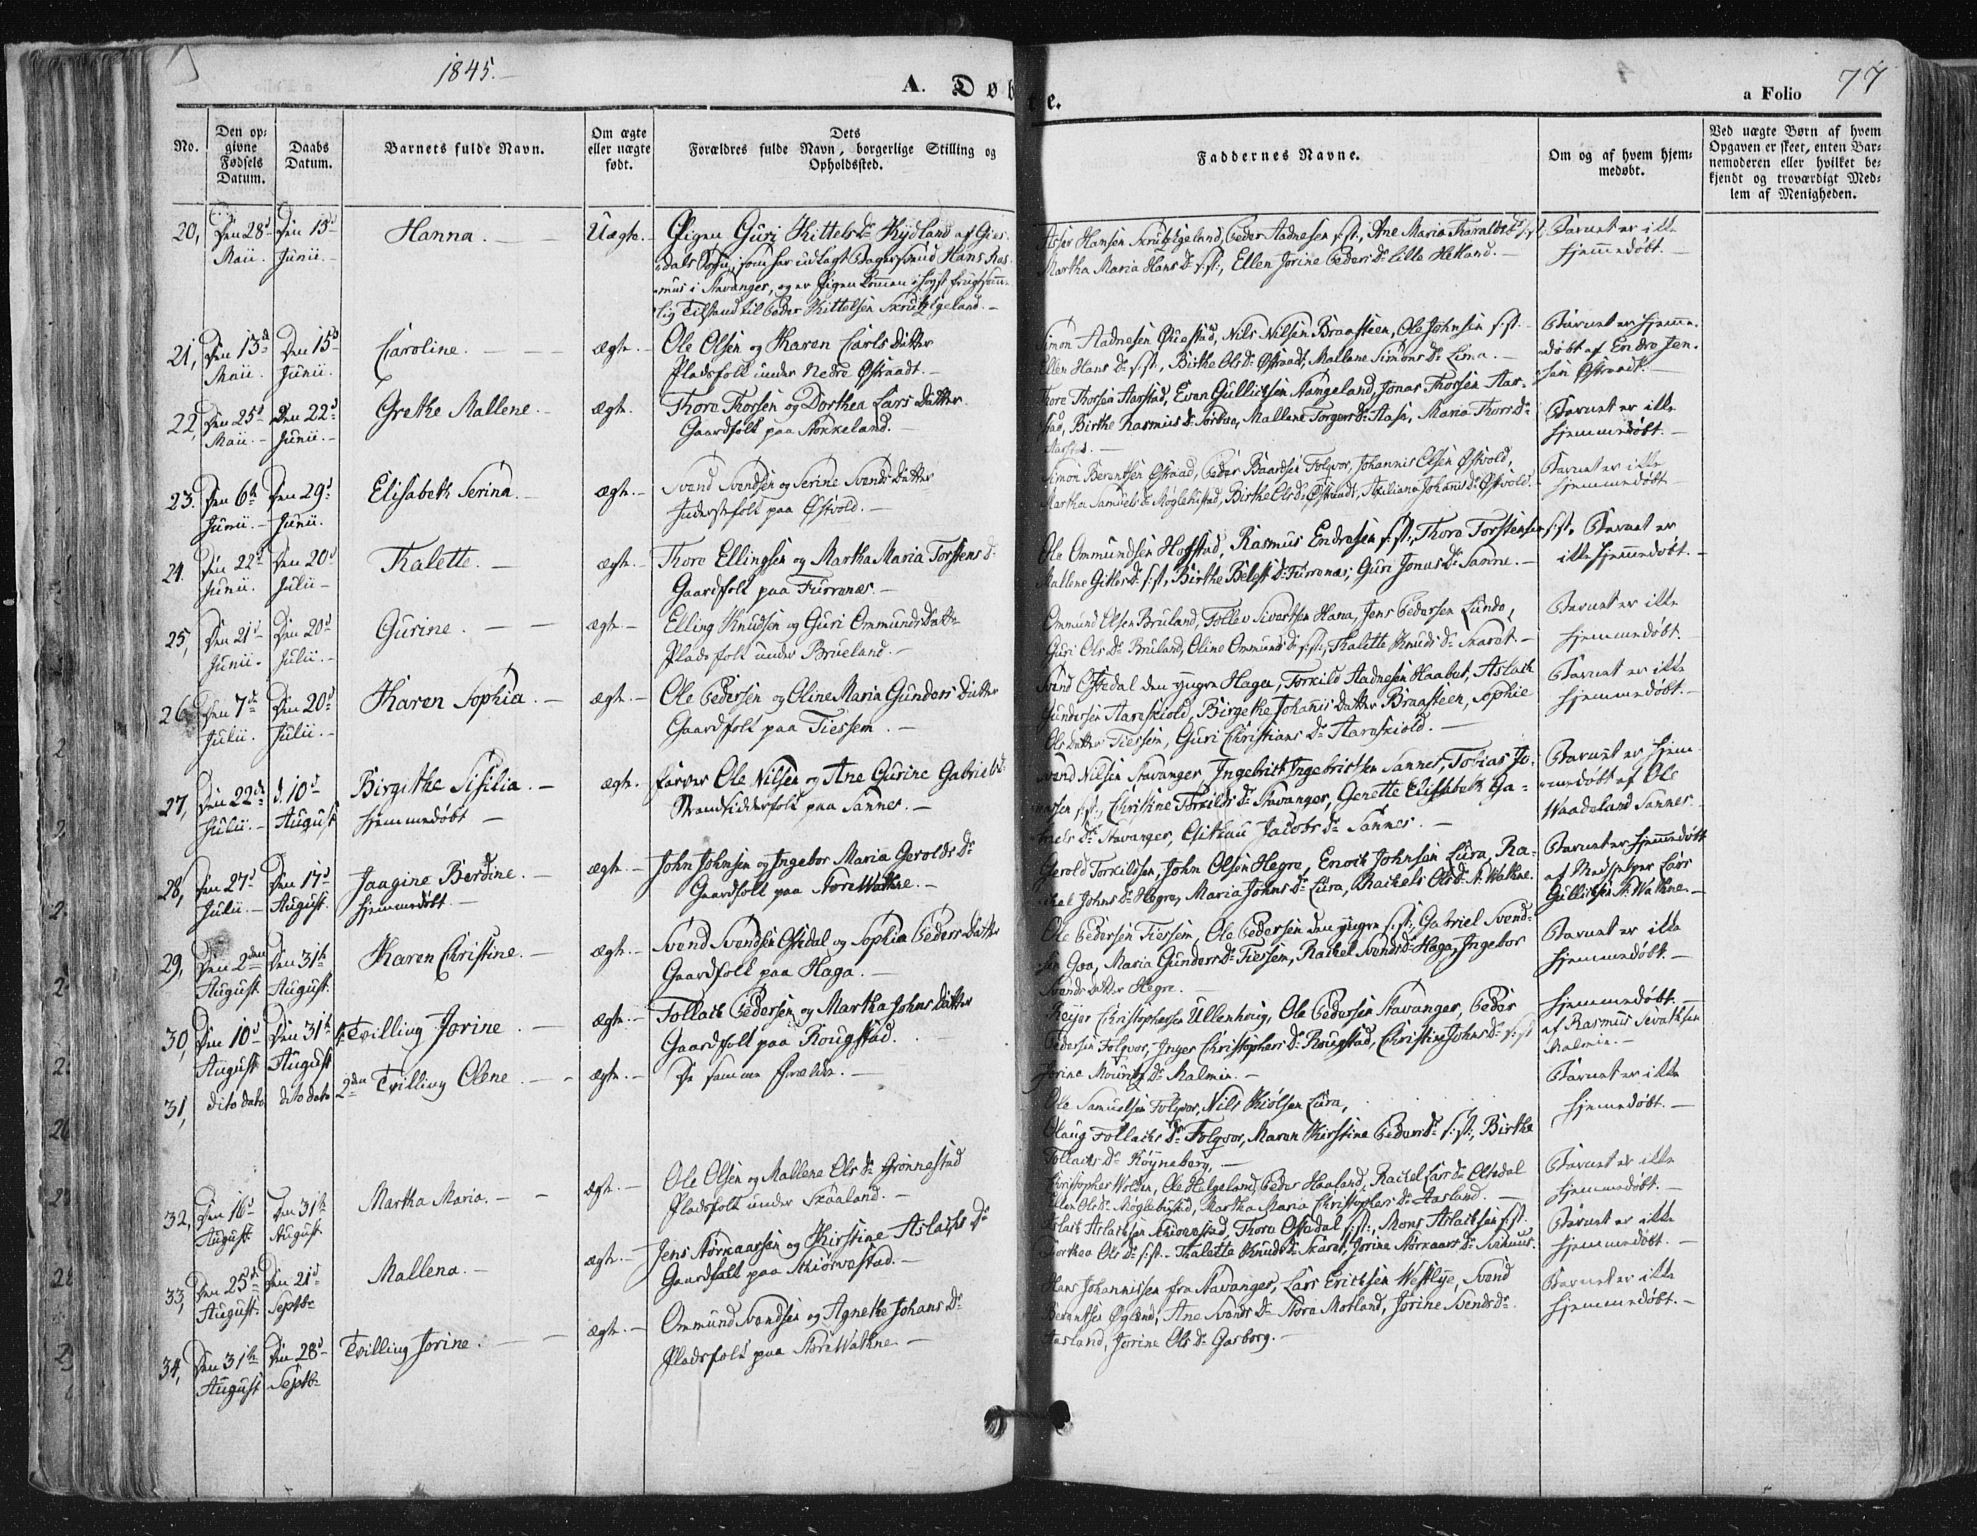 1845.
A. Døbte.
a Folio 77
No.
Den opgivne Fødsels Datum.
Daabs Datum.
Barnets fulde Navn.
Om ægte eller uægte født.
Dets
Forældres fulde Navn, borgerlige Stilling og
Opholdssted.
Faddernes Navne.
Om og af hvem hjemmedøbt.
Ved uægte Børn af hvem
Opgaven er skeet, enten Bar-
nemoderen eller hvilket be-
kjendt og troværdigt Med-
lem af Menigheden.
20, Den 28d Den 15d Hanna. — Uægte. Pigen Guri Kittels Dr Kydland af Gies-
Maii. Junii. — dals Sogn, som har udlagt Bagersvend Hans Ras-
mus i Stavanger, og er Pigen kommen i høist frugtsom-
lig Tilstand til Peder Kittelsen Skrudtzigeland. —
Asser Hansen Skrudtzigeland, Peder Aadnesen s:st:, Ane Maria
Martha Maria Hans Dr s:st:, Ellen Jorine Peders Dr lille Hetland. —
Barnet er ikke
hjemmedøbt. —
21, Den 13d Den 15d Caroline. — — — ægte. Ole Olsen og Karen Carls datter
Maii. Junii. Pladsfolk under Nedre Østraadt. —
Simon Aadnesen Nils Nilsen Braasteen, Ole Johnsen s:st: —
Ellen Hans Dr s:st:, Birthe Ols Dr Østraadt, Mallene Simons Dr Lima. —
Barnet er hjemme-
døbt af Endre Jen-
sen Østraadt. —
22, Den 25d Den 22d Grethe Mallene. — ægte. Thore Thorsen og Dorthea Lars datter
Maii. — Junii. — Gaardfolk paa Stokkeland. —
Thore Thorsen Aarstad, Even Gullicksen Stangeland, Jonas Thorsen Aar-
stad, Birthe Rasmus Dr Sørboe, Mallene Torgers Dr Aase, Maria Thors Dr
Aarstad. —
Barnet er ikke
hjemmedøbt. —
23. Den 6te Den 29d Elisabeth Serina. — ægte. — Svend Svendsen og Serine Svends datter
Junii. — Junii. Inderstefolk paa Østvold. —
Simon Berentsen Østraad, Peder Baardsen Folqvor, Johannis Olsen Østvold,
Martha Samuels Dr Møglebustad, Birthe Ols Dr Østraadt, Johans Dr Østvold.
Barnet er ikke
hjemmedøbt
24. Den 22d Den 20d Thalette. — ægte. — Thore Ellingsen og Martha Maria Torstens Dr
Junii. Julii — Gaardfolk paa Furrenæs. —
Ole Ommundsen Hofstad, Rasmus Endresen s:st:, Thore Torstensen s:st:,
Mallene Gitles Dr s:st:, Birthe Dr Furrenæs, Guri Jonas Dr Sanne. —
Barnet er
ikke hjemmedøbt. —
25, Den 21d Den 20d Gurine. — — ægte — Elling Knudsen og Guri Ommunds datter
Junii. Julii. — Pladsfolk under Brueland. —
Ommund Olsen Bruland, Tollev Sivertsen Hana, Jens Pedersen Lunde,
Guri Ols Dr Bruland, Oline Ommunds Dr s:st:, Thalette Knuds Dr Skaret. —
Barnet er ikke
hjemmedøbt.
26, Den 7de Den 20d Karen Sophia. — ægte. — Ole Pedersen og Oline Maria Gunders datter
Julii. Julii. — Gaardfolk paa Tiessem. —
Svend Ostedal den yngre Haga, Torkild Aadnesen Aslack
Gundersen Aareskiold, Birgethe Johans datter Braasteen, Sophie
Ols datter Tiessem, Guri Christians Dr Aareskiold. —
Barnet er ikke
hjemmedøbt. —
27, Den 22de d. 10d Birgithe Sisilia. — ægte. Farver Ole Nilsen og Ane Gurine Gabriels Dr
Julii. — August hjemmedøbt — Strandsidderfolk paa Sannes. —
Svend Nilsen Stavanger, Ingebrict Ingebrictsen Sannes, Tobias
s:st:, Christine Torkilds Dr Stavanger, Gerette Elisabeth Ga-
briels Dr Stavanger, Jacobs Dr Sannes. —
Barnet er hjem-
medøbt af Ole
Waadeland Sannes.
28, Den 27d Den 17d Jaagine Berdine. — ægte. — John Johnsen og Ingebor Maria Gerolds Dr
Julii. — August. hjemmedøbt. — Gaardfolk paa Store Watne. —
Gerold Torkildsen, John Olsen Hegre, Enock Johnsen Lura, Ra-
chel Johns Dr Hegre, Maria Johns Dr Lura, Rachels Ols Dr St. Wathne.
Barnet er hjemmedøbt
af Medhjelper Lars
Gullicksen St. Wathne. —
29, Den 2den Den 31te Karen Christine. — ægte. — Svend Svendsen Ostedal og Sophia Peders datter
August. August. Gaardfolk paa Haga. —
Ole Pedersen Tiessem, Ole Pedersen den yngre s:st:, Gabriel Svend-
sen Goa, Maria Gunders Dr Tiessem, Rachel Svends Dr Haga, Ingebor
Svends datter Hegre. —
Barnet er ikke
hjemmedøbt. —
30, Den 10d Den 31te 1. Tvilling Jorine. — ægte. — Tollack Pedersen og Martha Johns datter
August August Gaardfolk paa Rougstad.
Reyer Christophersen Ullenhoug, Ole Pedersen Stavanger, Peder
Pedersen Folqvor, Inger Christophers Dr Rougstad, Christine Johns Dr s:st:
Jorine Mouritz Dr Malmin. —
hjemmedøbt.
af Rasmus Sevatsen
Malmin. —
31, dito dato dito dato 2den Tvilling Olene. — — ægte. — De samme Forældre. —
Ole Samuelsen Folqvor, Nils Kiølsen Lura,
Olaug Tollacks Dr Folqvor, Maren Kirstine Peders Dr s:st:, Birthe
Tollacks Dr Høyneberg. —
Barnet er ikke
hjemmedøbt. —
32, Den 16d Den 31te Martha Maria. — — ægte. — Ole Olsen og Mallene Ols Dr Grønnestad
August August. Pladsfolk under Skaaland. —
Christopher Wolden, Ole Helgeland, Peder Haaland, Rachel Lars Dr Ostedal
Ellen Ols Dr Møglebustad, Martha Maria Christophers Dr Aasland. —
Barnet er ikke
hjemmedøbt. —
33, Den 25de Den 21d Mallena. — ægte. — Jens Størkaarsen og Kirstine Aslacks Dr
August. Septbr Gaardfolk paa Skiørvestad. —
Aslack Aslacksen Skiørvestad, Thore Ostedal s:st:, Mons Aslacksen s:st:
Dorthea Ols Dr s:st: — Thalette Knuds Dr Skaret, Jorine Størkaars Dr
Barnet er ikke
hjemmedøbt. —
34, Den 31te Den 28d Tvilling Jorine. — — ægte. — Ommund Svendsen og Agnethe Johans Dr
August Septbr Pladsfolk paa Store Wathne. —
Hans Johannissen fra Stavanger, Lars Ericksen Westlye, Svend
Berentsen Øglænd, Ane Svends Dr Store Motland, Jorine Svends Dr
Aasland, Jorine Ols Dr Gjesborg. —
Barnet er ikke
hjemmedøbt. —